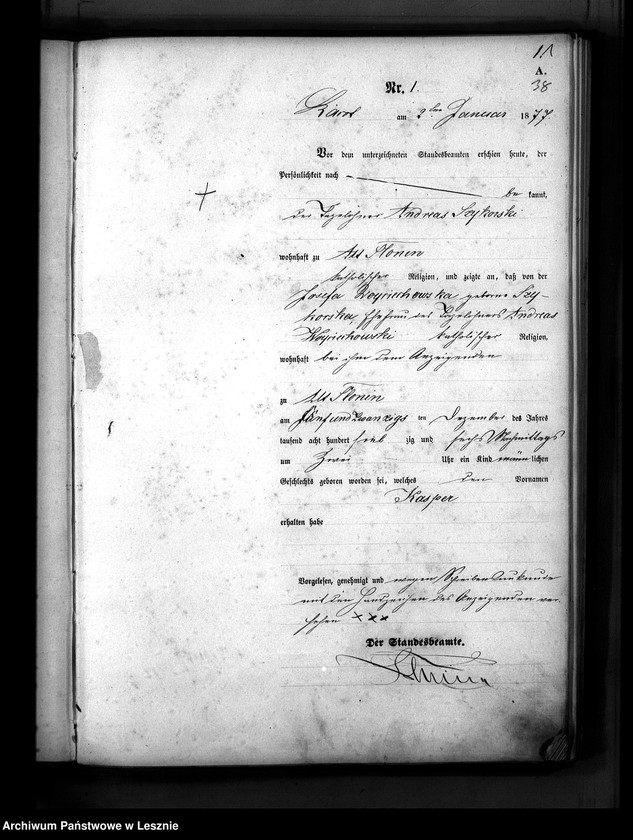 11
A.
38
Nr. 1.
am 2ten Januar 1877.
Vor dem unterzeichneten Standesbeamten erschien heute, der
Persönlichkeit nach
be kannt,
der Tagelöhner Andreas Szykorski
wohnhaft zu Alt
katholischer Religion, und zeigte an, daß von der
Josefa Woyciechowska geborne Szy-
korska Ehefrau des Tagelöhners Andreas
Woyciechowski katholischer Religion,
wohnhaft bei ihm dem Anzeigenden
zu Alt
am fünfundzwanzigs ten Dezember des Jahres
tausend acht hundert sieb zig und sechs Nachmittags
um Zwei Uhr ein Kind männlichen
Geschlechts geboren worden sei, welches den Vornamen
Kasper
erhalten habe
Vorgelesen, genehmigt und wegen Schreibensunkunde
mit den Handzeichen des Anzeigenden ver-
sehen XXX
Der Standesbeamte.
Archiwum Państwowe w Lesznie